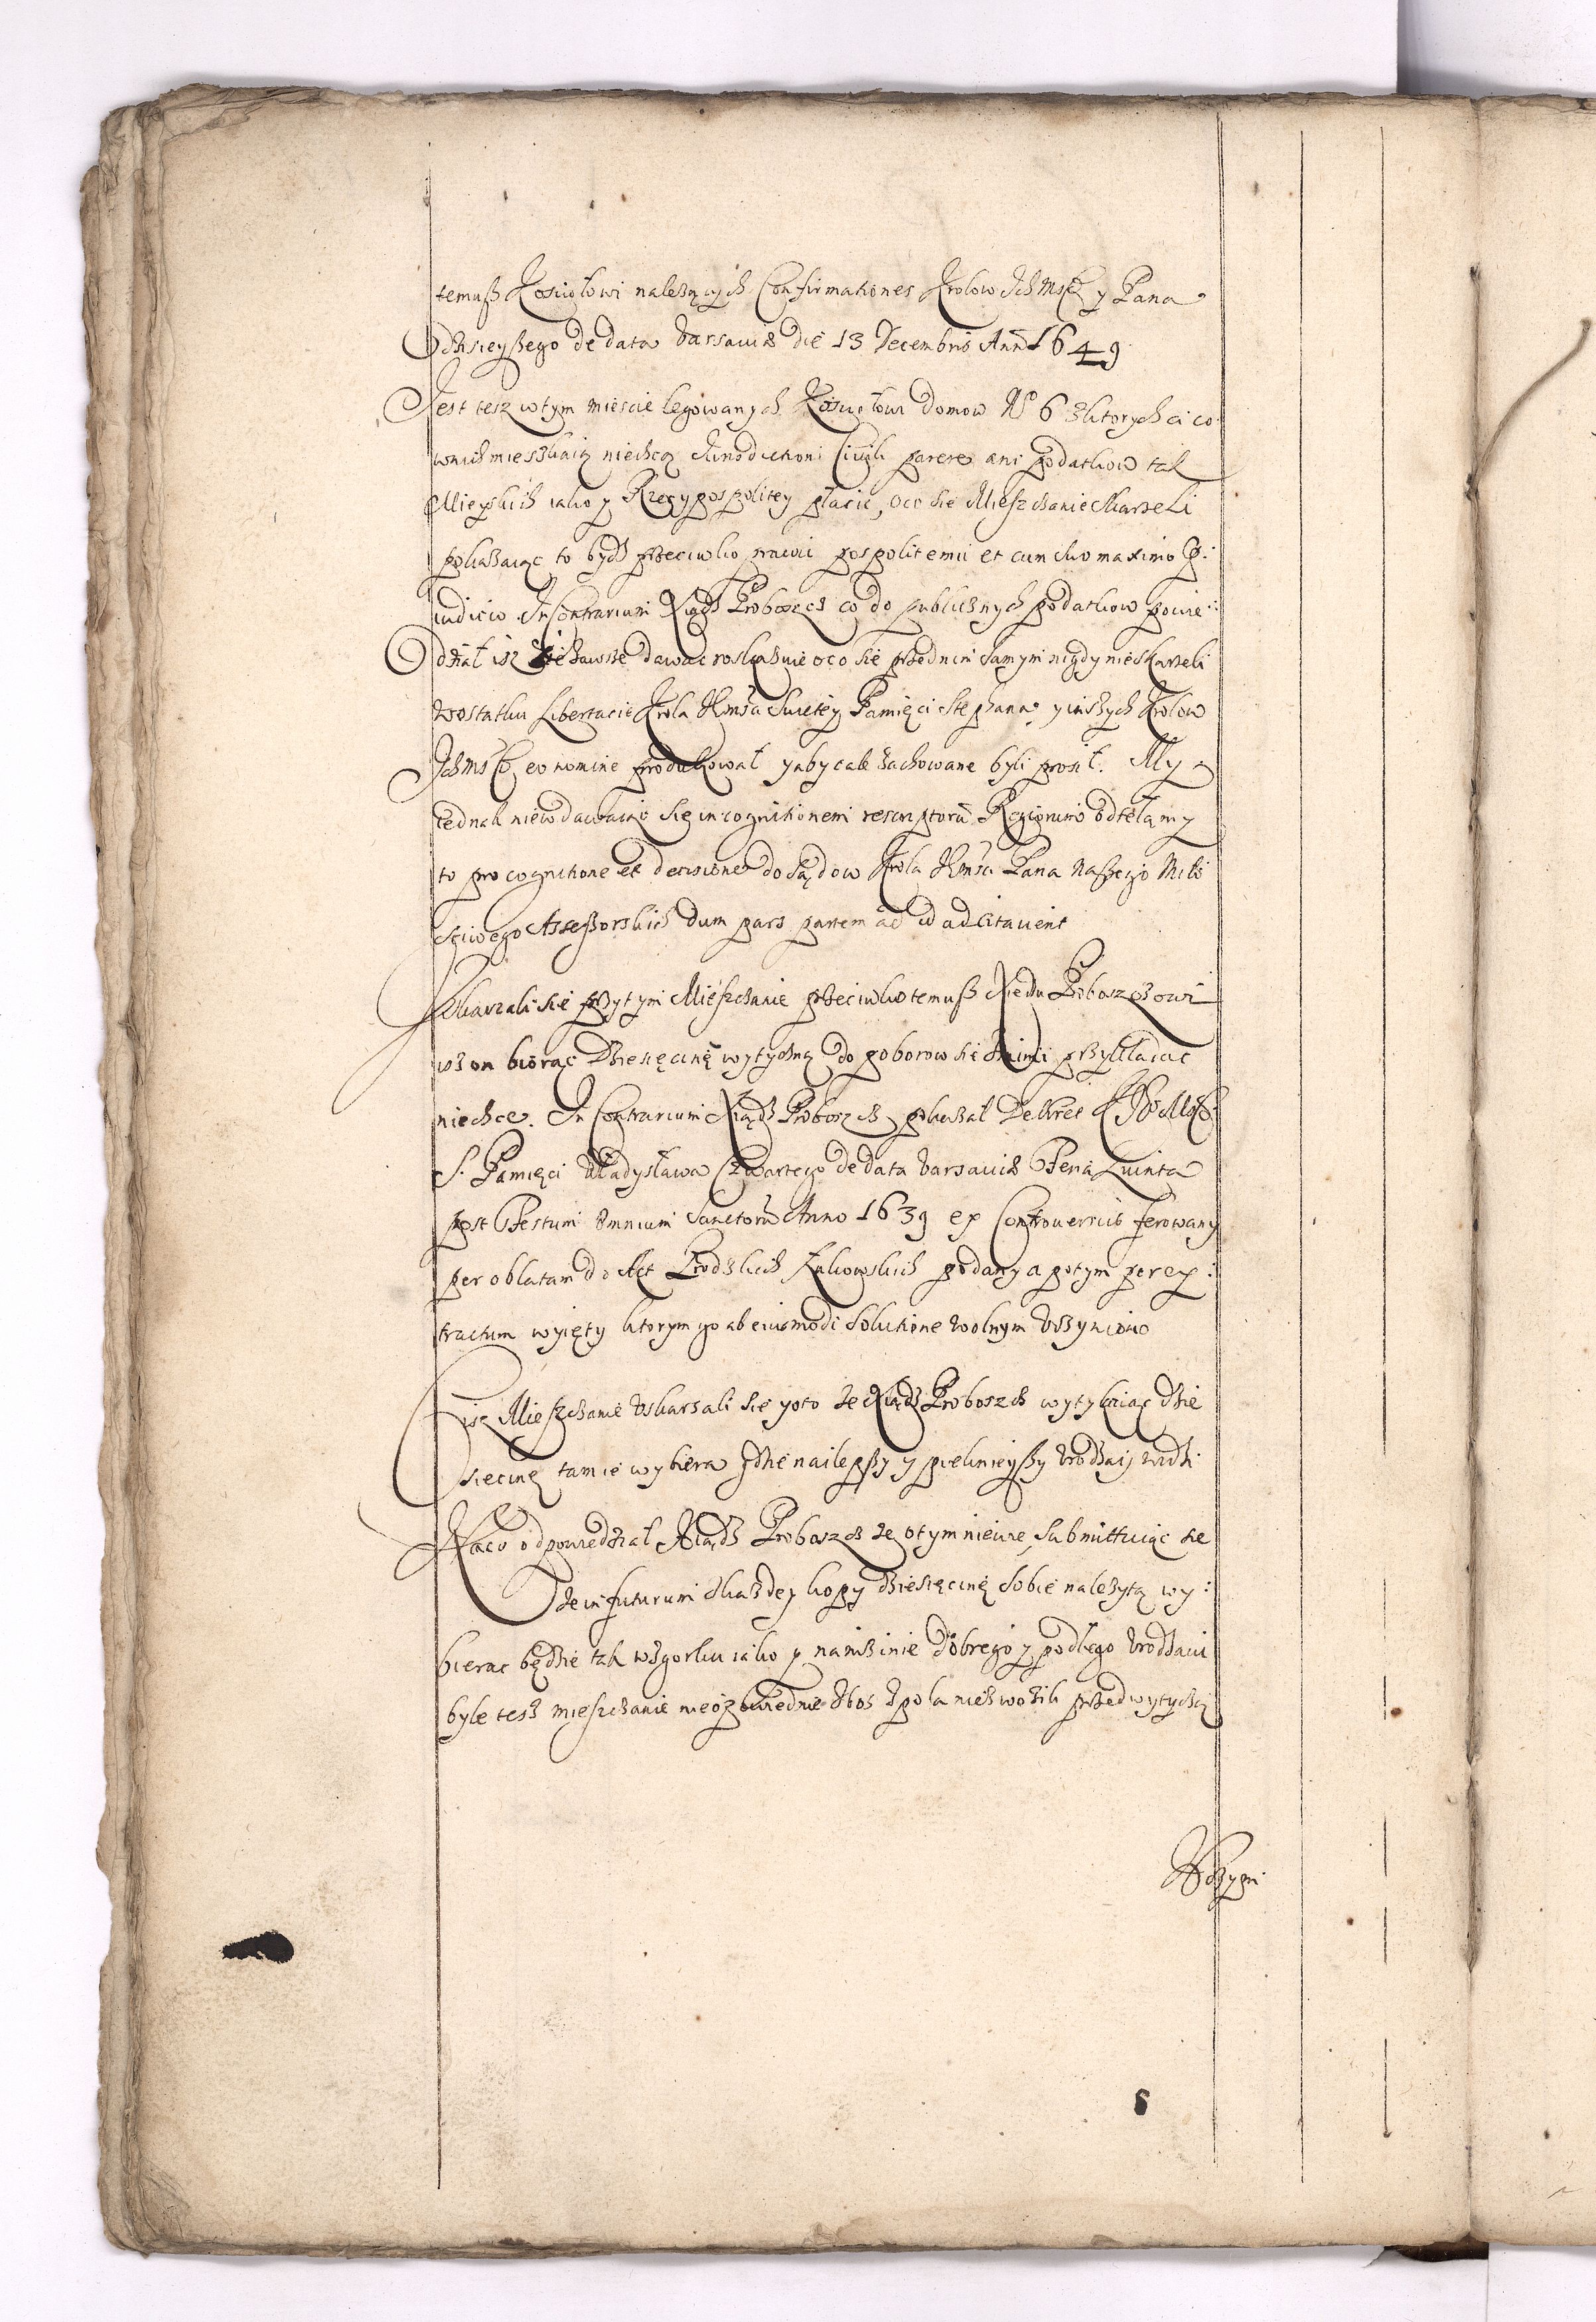 temuß Kosciołowi należących Confirmationes Krolow Ich Msc y Pana
dzisieyßego de data Varsaviæ die 13 Decembris Ann 1649
Iest tesz wtym miescie legowanych Kosciołowi domow No 6 zktorych ci co
wnich mieszkaią niechcą Iurisdictioni Civili parere ani podatkow tak
Mieyskich iako y Rzeczypospolitey płacic, oco sie Mieszczanie skarzeli
pokazuiąc to bydz przeciwko prawu pospolitemu et cum suo maximo præ:
iudicio. In Contrarium Xiądz Proboszcz co do publicznych podatkow powie:
dział isz zawsze dawac roskazuie oco sie przednim samym nigdy nieskarzeli
wostatku Libertacie Krola JKmsci Swietey Pamięci Stephana y inszych Krolow
Ich Msc eo nomine produkował y aby cale zachowane byli prosił. My
iednak niewdawaiąc się in cognitionem rescriptorū Regiorum odsełamy
to pro cognitione et decisione do Sądow Krola JKmsci Pana Naßego Miło
sciwego Assessorskich dum pars partem ad id adcitaverit
Skarzali sie przytym Mieszczanie przeciwko temuß Xiedzu Proboszczowi
isz on biorąc dziesięcinę wytyczną do poborow sie znimi przykładac
niechce. In Contrarium Xiądz Proboszcz pokazał Dekret
S. Pamięci Władysława Czwartego de data Varsaviæ Feria Quinta
post Festum Omnium Sanctorū Anno 1639 ex Controversiis ferowany
per oblatam do Akt Grodzkich podany a potym per ex:
tractum wyięty ktorym go ab eiusmodi solutione wolnym uczyniono
Ciż Mieszczanie uskarzali się y oto że Xiądz Proboszcz wytykaiąc dzie
sięcinę tamże wybiera gdzie nailepszy y pieknieyßy urodzaij widzi
Naco odpowiedział Xiądz Proboszcz że otym niewie, submittuiąc sie
że in futurum zkazdey kopy dziesięcinę sobie należytą wy:
bierac będzie tak wzgorku iako y nanizinie dobrego y podłego urodzaiu
byle tesz mieszczanie zboz zpola niezwozili przed wytyczką